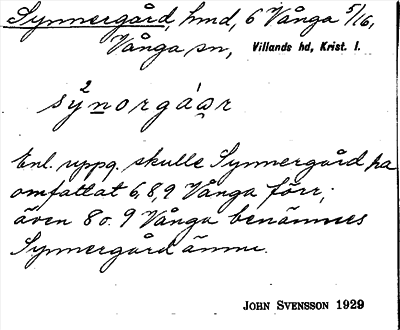 Synnergård, hmd, 6 Vånga 5/16,
Vånga sn, Villands hd, Krist. l.
sy²norgá̀ar
Enl. uppg. skulle Synnergård ha
omfattat 6,8,9 Vånga förr;
även 8 o. 9 Vånga benämnes
Synnergård ännu.
JOHN SVENSSON 1929